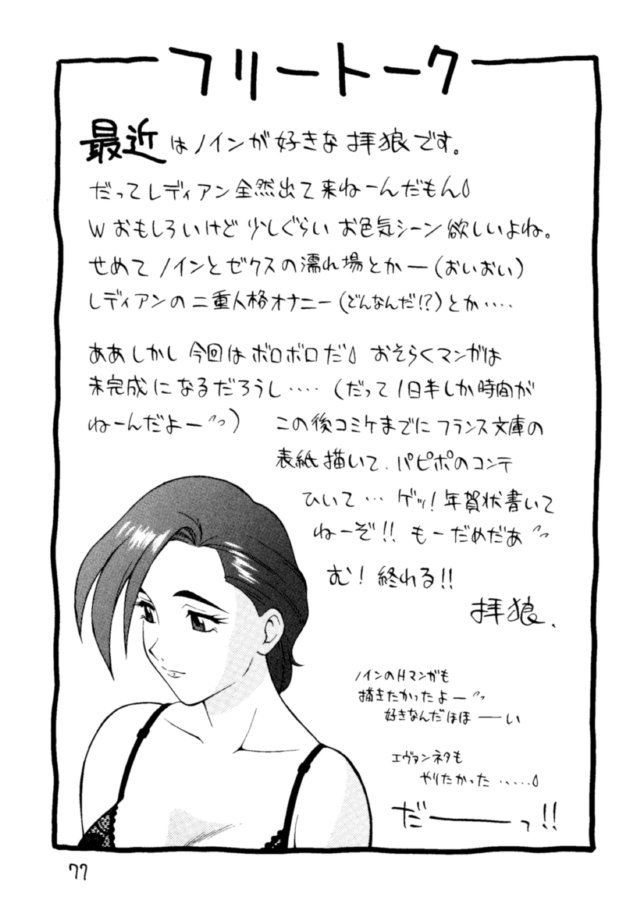 フリートーク
最近はノインが好きな拝狼です。
だってレディアン全然出て来ねーんだもん
Wおもしろいけど少しぐらいお色気シーン欲しいよね。
せめてノインとゼクスの濡れ場とかー(おいおい)
レディアンの二重人格オナニー(どんなんだ!?)とか‥‥
ああしかし今回はボロボロだ おそらくマンガは
未完成になるだろうし‥‥(だって1日半しか時間が
ねーんだよー〃)この後コミケまでにフランス文庫の
表紙描いて、パピポのコンテ
ひいて…ゲッ!年賀状書いて
ねーぞ!!もーだめだあ〃
む!終れる!!
拝狼、
ノインのHマンガも
描きたかったよー〃
好きなんだほほーい
エヴァンネタも
やりたかった‥‥‥
だーーっ!!
77